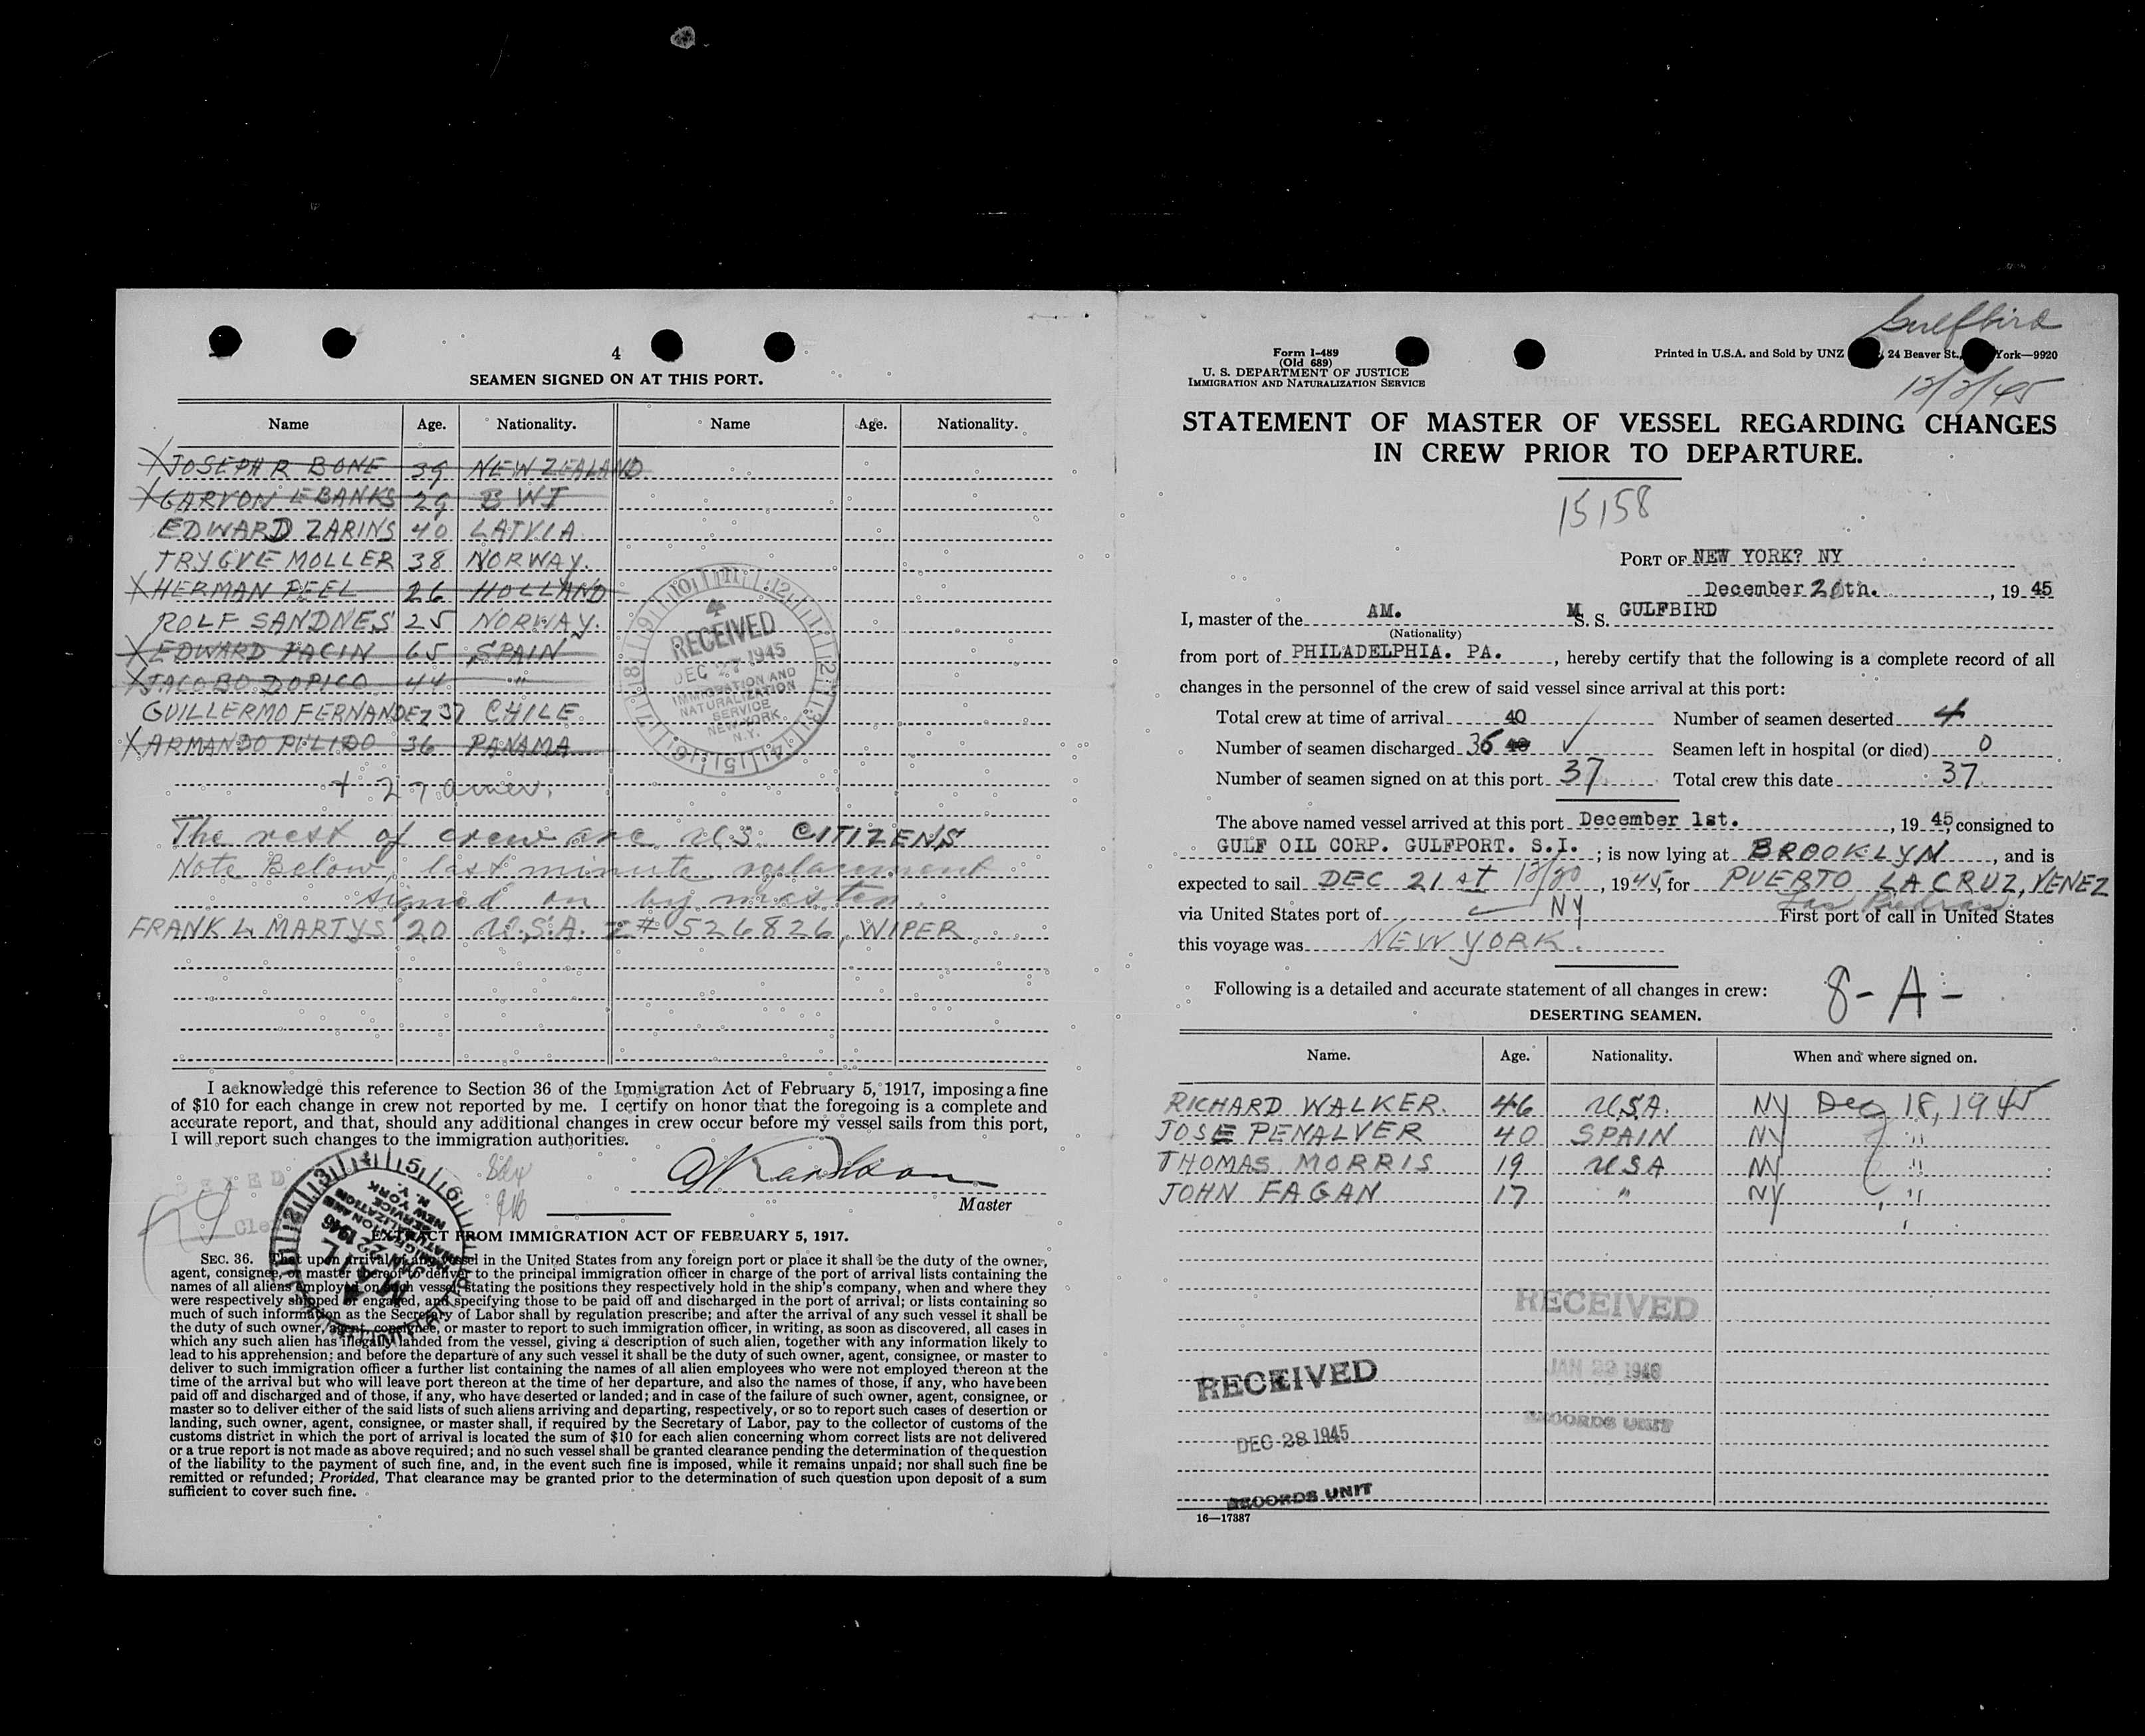 4
SEAMEN SIGNED ON AT THIS PORT.
Name Age. Nationality. Name Age. Nationality.
X JOSEPH R BONE 39 NEW ZEALAND
X GARVON EBANKS 29 B W I
EDWARD ZARINS 40 LATVIA
TRYGVE MOLLER 38 NORWAY.
X HERMAN PEEL 26 HOLLAND
ROLF SANDNES 25 NORWAY.
X EDWARD PACIN 65 SPAIN
X JACOBO DOPICO 44 "
GUILLERMO FERNANDEZ 37 CHILE
X ARMANDO PULIDO 36 PANAMA
+ 27 amer.
The rest of crew are U.S. CITIZENS
Note Below, last minute replacement
signed on by master.
FRANK L. MARTYS 20 U.S.A. Z# 526826, WIPER
RECEIVED
DEC 27 1945
IMMIGRATION AND
NATURALIZATION
SERVICE
NEW YORK.
N.Y.
I acknowledge this reference to Section 36 of the Immigration Act of February 5, 1917, imposing a fine
of $10 for each change in crew not reported by me. I certify on honor that the foregoing is a complete and
accurate report, and that, should any additional changes in crew occur before my vessel sails from this port,
I will report such changes to the immigration authorities.
Master
EXTRACT FROM IMMIGRATION ACT OF FEBRUARY 5, 1917.
SEC. 36. That upon arrival of any vessel in the United States from any foreign port or place it shall be the duty of the owner,
agent, consignee, or master thereof to deliver to the principal immigration officer in charge of the port of arrival lists containing the
names of all aliens employed on such vessel, stating the positions they respectively hold in the ship's company, when and where they
were respectively shipped or engaged, and specifying those to be paid off and discharged in the port of arrival; or lists containing so
much of such information as the Secretary of Labor shall by regulation prescribe; and after the arrival of any such vessel it shall be
the duty of such owner, agent, consignee, or master to report to such immigration officer, in writing, as soon as discovered, all cases in
which any such alien has illegally landed from the vessel, giving a description of such alien, together with any information likely to
lead to his apprehension; and before the departure of any such vessel it shall be the duty of such owner, agent, consignee, or master to
deliver to such immigration officer a further list containing the names of all alien employees who were not employed thereon at the
time of the arrival but who will leave port thereon at the time of her departure, and also the names of those, if any, who have been
paid off and discharged and of those, if any, who have deserted or landed; and in case of the failure of such owner, agent, consignee, or
master so to deliver either of the said lists of such aliens arriving and departing, respectively, or so to report such cases of desertion or
landing, such owner, agent, consignee, or master shall, if required by the Secretary of Labor, pay to the collector of customs of the
customs district in which the port of arrival is located the sum of $10 for each alien concerning whom correct lists are not delivered
or a true report is not made as above required; and no such vessel shall be granted clearance pending the determination of the question
of the liability to the payment of such fine, and, in the event such fine is imposed, while it remains unpaid; nor shall such fine be
remitted or refunded; Provided, That clearance may be granted prior to the determination of such question upon deposit of a sum
sufficient to cover such fine.
Gulfbird
Form I-489
(Old 689)
U. S. DEPARTMENT OF JUSTICE
IMMIGRATION AND NATURALIZATION SERVICE
Printed in U.S.A. and Sold by UNZ 24 Beaver St., York—9920
STATEMENT OF MASTER OF VESSEL REGARDING CHANGES
IN CREW PRIOR TO DEPARTURE.
15158
PORT OF NEW YORK? NY
December 20th., 19 45
I, master of the AM. M. S. S. GULFBIRD
(Nationality)
from port of PHILADELPHIA. PA., hereby certify that the following is a complete record of all
changes in the personnel of the crew of said vessel since arrival at this port:
Total crew at time of arrival 40 Number of seamen deserted 4
Number of seamen discharged 36 40 Seamen left in hospital (or died) 0
Number of seamen signed on at this port 37 Total crew this date 37
The above named vessel arrived at this port December 1st., 19 45, consigned to
GULF OIL CORP. GULFPORT. S.I. ; is now lying at BROOKLYN, and is
expected to sail DEC 21st 12/20, 1945, for PUERTO LA CRUZ, VENEZ
Las Piedras
via United States port of NY First port of call in United States
this voyage was NEW YORK.
Following is a detailed and accurate statement of all changes in crew: 8-A-
DESERTING SEAMEN.
Name. Age. Nationality. When and where signed on.
RICHARD WALKER. 46 USA. NY Dec 18, 1945
JOSE PENALVER 40 SPAIN NY "
THOMAS MORRIS 19 USA NY "
JOHN FAGAN 17 " NY "
RECEIVED
JAN 22 1946
RECORDS UNIT
RECEIVED
DEC 28 1945
RECORDS UNIT
16—17387